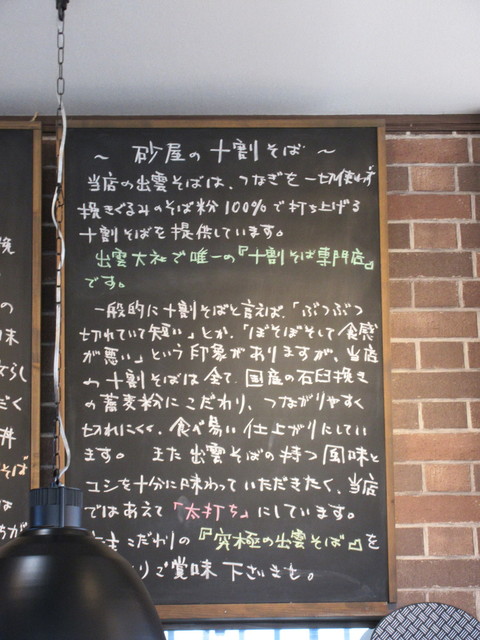 ～ 砂屋の十割そば ～
当店の出雲そばは、つなぎを一切使わず
挽きぐるみのそば粉100%で打ち上げる
十割そばを提供しています。
出雲大社で唯一の『十割そば専門店』
です。
一般的に十割そばと言えば、「ぶつぶつ
切れていて短い」とか、「ぼそぼそして食感
が悪い」という印象がありますが、当店
の十割そばは全て、国産の石臼挽き
の蕎麦粉にこだわり、つながりやすく
切れにくく、食べ易い仕上がりにしてい
ます。 また出雲そばの持つ風味と
コシを十分に味わっていただきたく、当店
ではあえて「太打ち」にしています。
こだわりの『究極の出雲そば』を
りご賞味下さいませ。
挽
の
味
だく
丼
そば
は